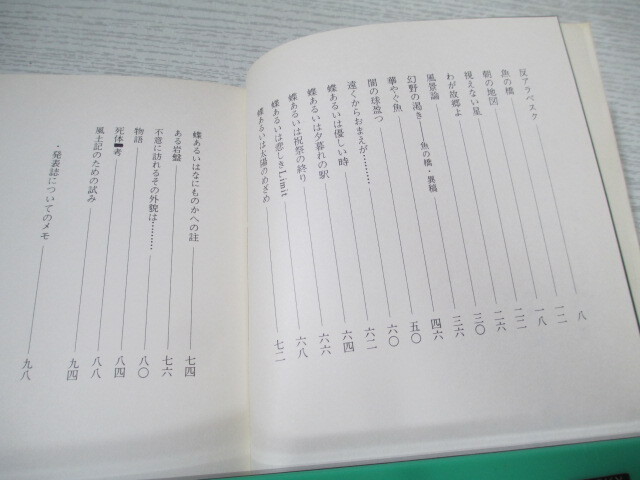 反アラベスク 八
魚の橋 一二
朝の地図 一八
視えない星 二二
わが故郷よ 二六
風景論 三〇
幻野の渇き――魚の橋・異稿 三六
華やぐ魚 四六
闇の球盈つ 五〇
遠くからおまえが……… 六〇
蝶あるいは優しい時 六二
蝶あるいは夕暮れの駅 六四
蝶あるいは祝祭の終り 六六
蝶あるいは悲しきLimit 六八
蝶あるいは太陽のめざめ 七二
蝶あるいはなにものかへの註 七四
ある岩盤 七六
不意に訪れるその外貌は……… 八〇
物語 八四
死体■考 八八
風土記のための試み 九四
・発表誌についてのメモ 九八